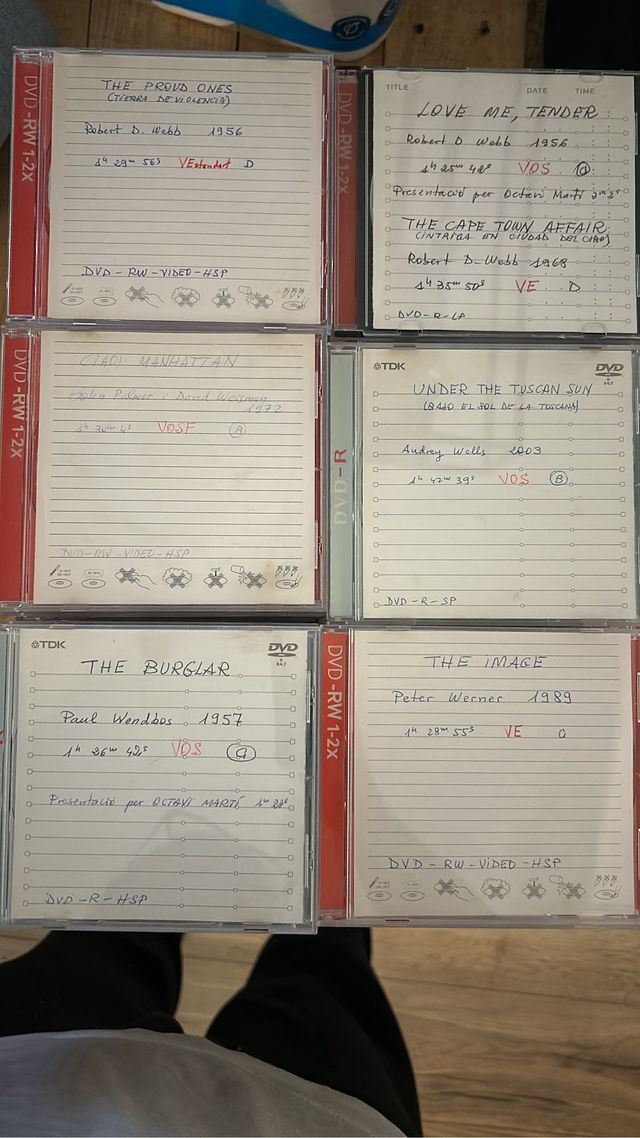 DVD-RW 1-2X
THE PROUD ONES
(TIERRA DE VIOLENCIA)
Robert D. Webb 1956
1h 29m 56s VEstandart D
DVD-RW-VIDEO-HSP
DVD-RW 1-2X
TITLE DATE TIME
LOVE ME, TENDER
Robert D Webb 1956
1h 25m 42s VOS
Presentació per Octavi Martí
THE CAPE TOWN AFFAIR
(INTRIGA EN CIUDAD DEL CABO)
Robert D. Webb 1968
1h 35m 50s VE D
DVD-R-LP
DVD-RW 1-2X
CIAO! MANHATTAN
John Palmer i David Weisman
1972
1h 30m 4s VOSE B
DVD-RW-VIDEO-HSP
DVD-R
TDK DVD
UNDER THE TUSCAN SUN
(BAJO EL SOL DE LA TOSCANA)
Audrey Wells 2003
1h 47m 39s VOS B
DVD-R-SP
TDK DVD
THE BURGLAR
Paul Wendkos 1957
1h 26m 42s VOS
Presentació per OCTAVI MARTÍ
DVD-R-HSP
DVD-RW 1-2X
THE IMAGE
Peter Werner 1989
1h 28m 55s VE
DVD-RW-VIDEO-HSP